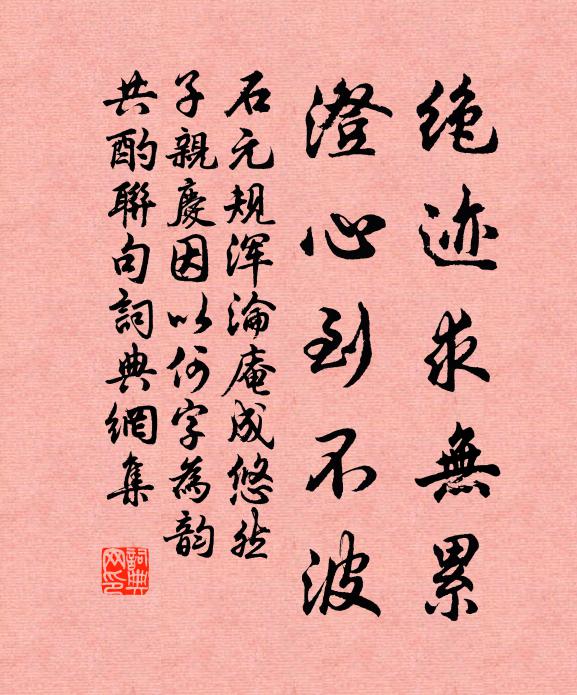 绝迹求無累
澄心到不波
石元規浑淪庵成悠然
子親慶因以何字為韵
共酌聯句詞典網集
詞典网印